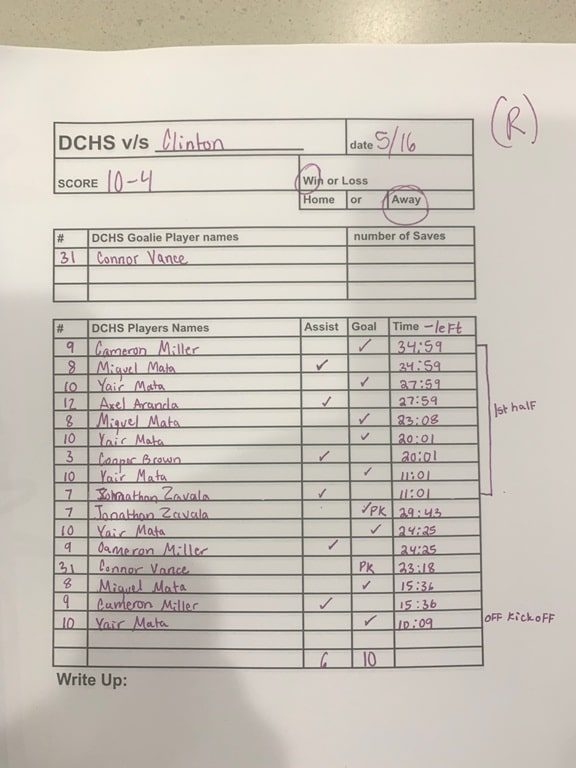 (R)
DCHS v/s Clinton date 5/16
SCORE 10-4 Win or Loss
Home or Away
# DCHS Goalie Player names number of Saves
31 Connor Vance
# DCHS Players Names Assist Goal Time -left
9 Cameron Miller ✓ 34:59
8 Miguel Mata ✓ 34:59
10 Yair Mata ✓ 27:59
12 Axel Aranda ✓ 27:59
8 Miguel Mata ✓ 23:08
10 Yair Mata ✓ 20:01
3 Conner Brown ✓ 20:01
10 Yair Mata ✓ 11:01
7 Johnathan Zavala ✓ 11:01
1st half
7 Jonathan Zavala ✓PK 29:43
10 Yair Mata ✓ 24:25
9 Cameron Miller ✓ 24:25
31 Connor Vance PK 23:18
8 Miguel Mata ✓ 15:36
9 Cameron Miller ✓ 15:36
10 Yair Mata ✓ 10:09 OFF Kick off
6 10
Write Up: